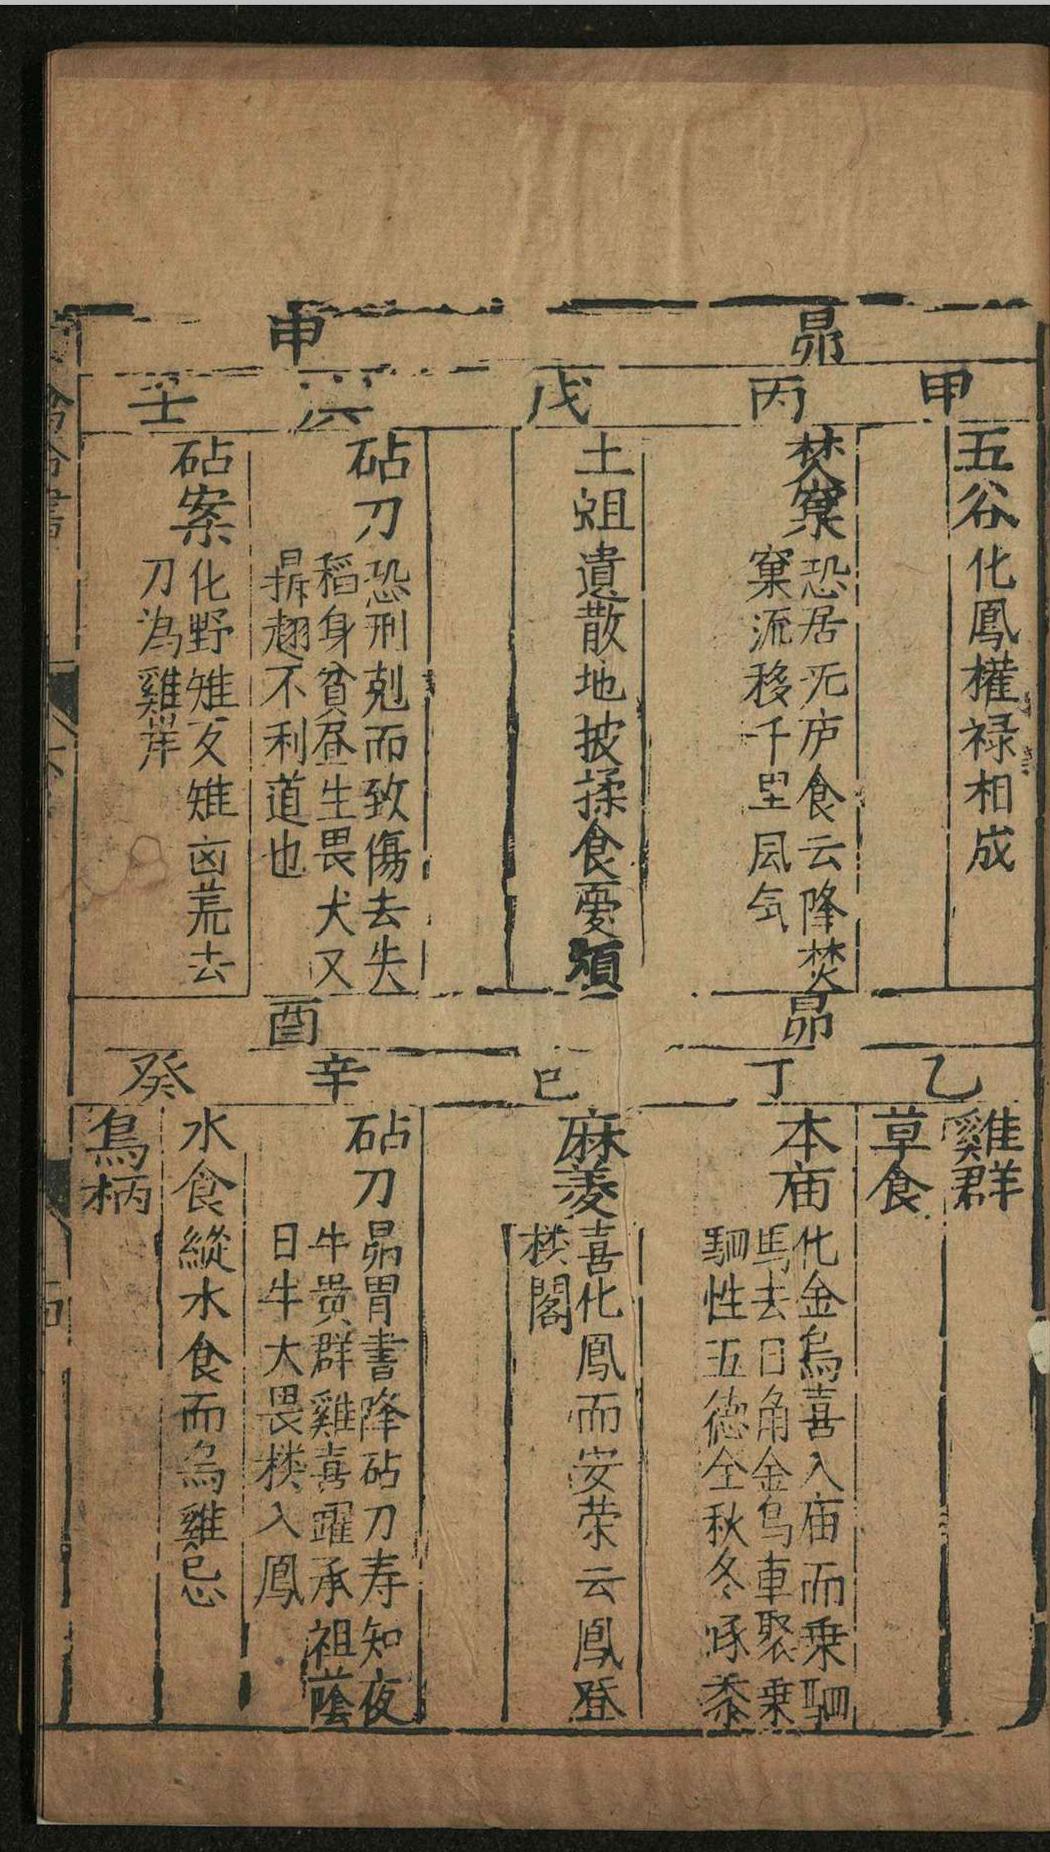 昴
甲
五谷化鳳權禄相成
丙
焚窠
恐居无庐食云降焚
窠流移千里风気
戊
土蛆遺散地披揉食憂煩
申
砧刀
恐刑剋而致傷去失
稻身貧昼生畏犬又
趐不利道也
壬
砧案
化野雉友雉凶荒去
刀為雞岸
昴
乙
雞群
草食
丁
本庙
化金烏喜入庙而乗駟
馬去日角金烏車聚乗
駟性五德全秋冬啄黍
巳
麻荾
喜化鳳而安荣云鳳登
楼閣
酉
辛
砧刀
昴胃書降砧刀寿知夜
牛贵群雞喜躍承祖蔭
日牛大畏楼入鳳
癸
水食縱水食而烏雞忌
烏柄